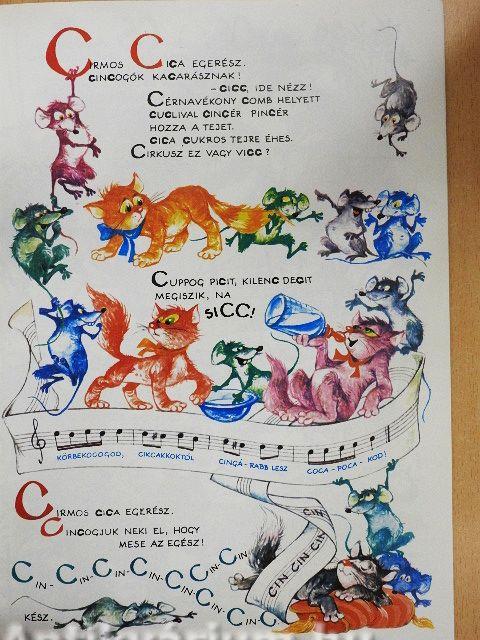 CIRMOS CICA EGERÉSZ.
CINCOGÓK KACARÁSZNAK!
– CICC, IDE NÉZZ!
CÉRNAVÉKONY COMB HELYETT
CUCLIVAL CINCÉR PINCÉR
HOZZA A TEJET.
CICA CUKROS TEJRE ÉHES.
CIRKUSZ EZ VAGY VICC?
CUPPOG PICIT, KILENC DECIT
MEGISZIK, NA
SICC!
KÖRBEKOCOGOD, CIKCAKKOKTÓL CINGÁ-RABB LESZ COCA-POCA-KOD!
CIRMOS CICA EGERÉSZ.
CINCOGJUK NEKI EL, HOGY
MESE AZ EGÉSZ!
CIN-CIN-CIN-CIN-CIN-CIN-CIN
CIN-CIN-CIN
CIN-CIN-CIN-CIN
KÉSZ.